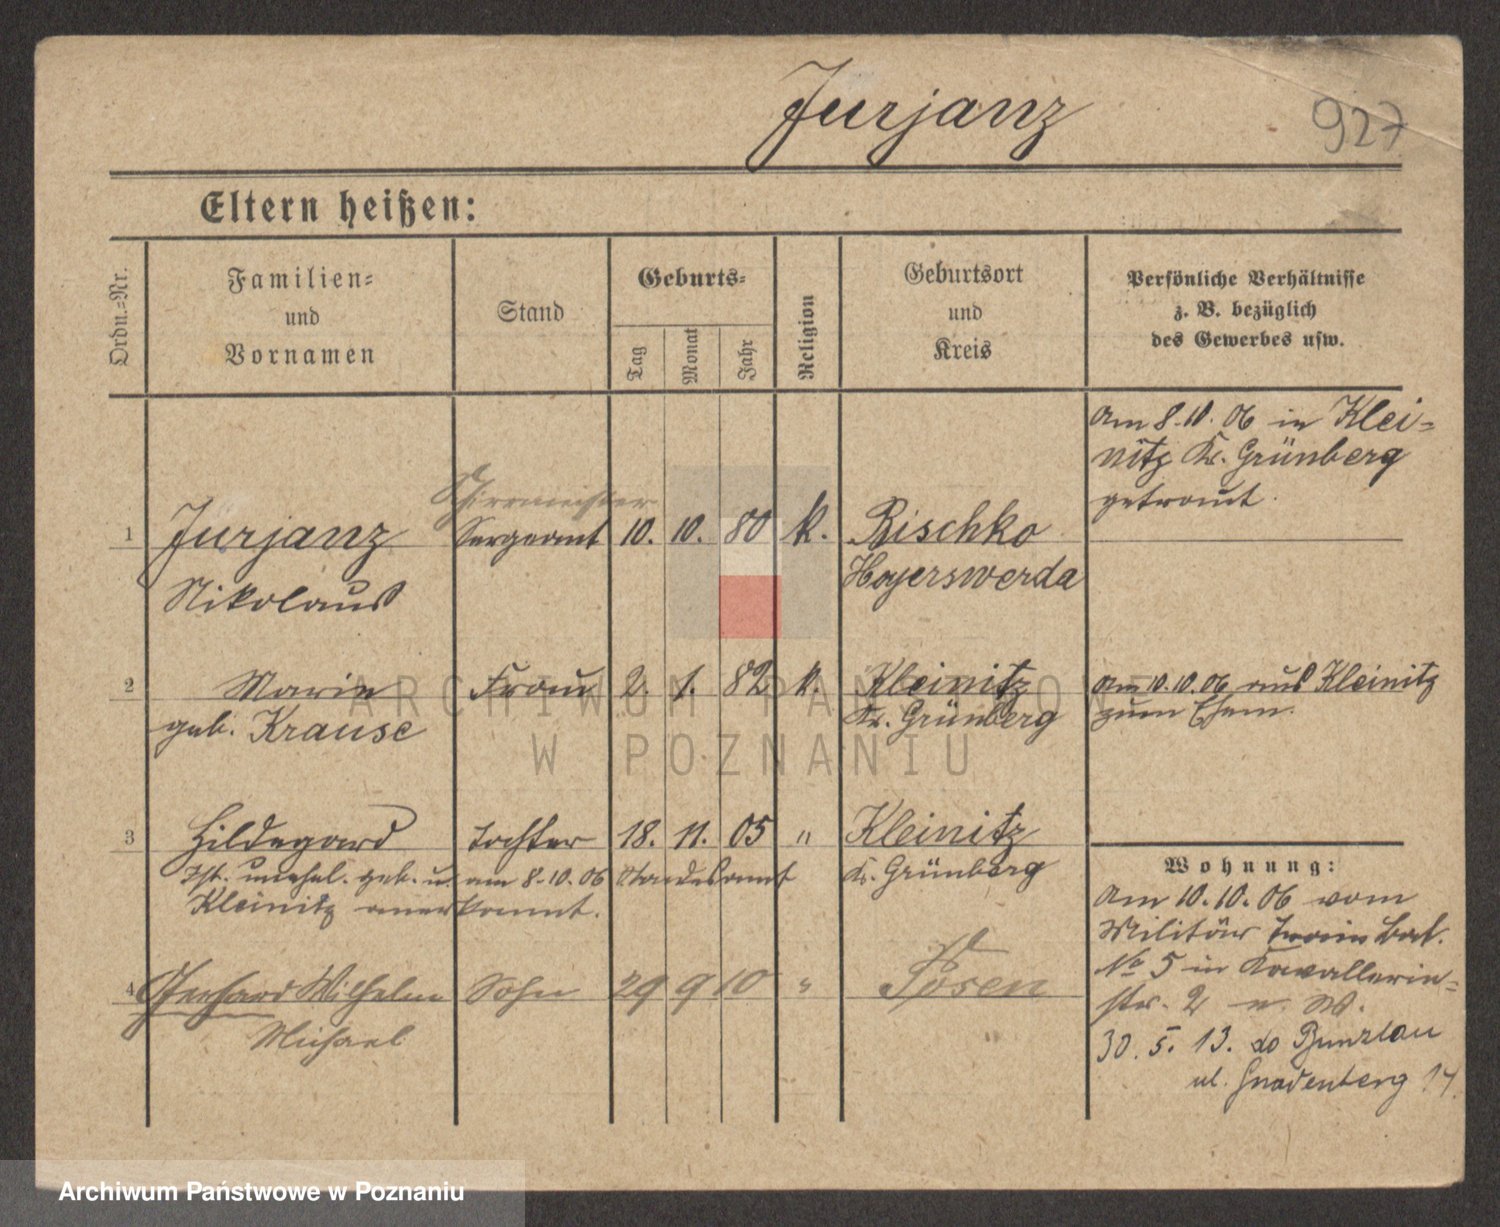 Jurjanz
927
Eltern heißen:
Ordn.-Nr.
Familien-
und
Vornamen
Stand
Geburts-
Tag
Monat
Jahr
Religion
Geburtsort
und
Kreis
Persönliche Verhältnisse
z. B. bezüglich
des Gewerbes usw.
Am 8.10.06 in Klei-
nitz Kr. Grünberg
getraut.
Schirrmeister
1 Jurjanz Sergeant 10. 10. 80 k. Bischko
Nikolaus Hoyerswerda
2 Marie Frau 2. 1. 82 k. Kleinitz Am 10.10.06 aus Kleinitz
geb. Krause Kr. Grünberg zum Ehem.
3 Hildegard Tochter 18. 11. 05 " Kleinitz
Ist unehel. geb. u. am 8.10.06 Standesamt Kr. Grünberg
Kleinitz anerkannt.
Wohnung:
Am 10.10.06 vom
Militär Train Bat.
No 5 in Kavallerie-
str. 2
4 Gerhard Wilhelm Sohn 29 9 10 " Posen
Michael
30. 5. 13. do Bunzlau
ul. Gnadenberg 14.
ARCHIWUM PAŃSTWOWE
W POZNANIU
Archiwum Państwowe w Poznaniu